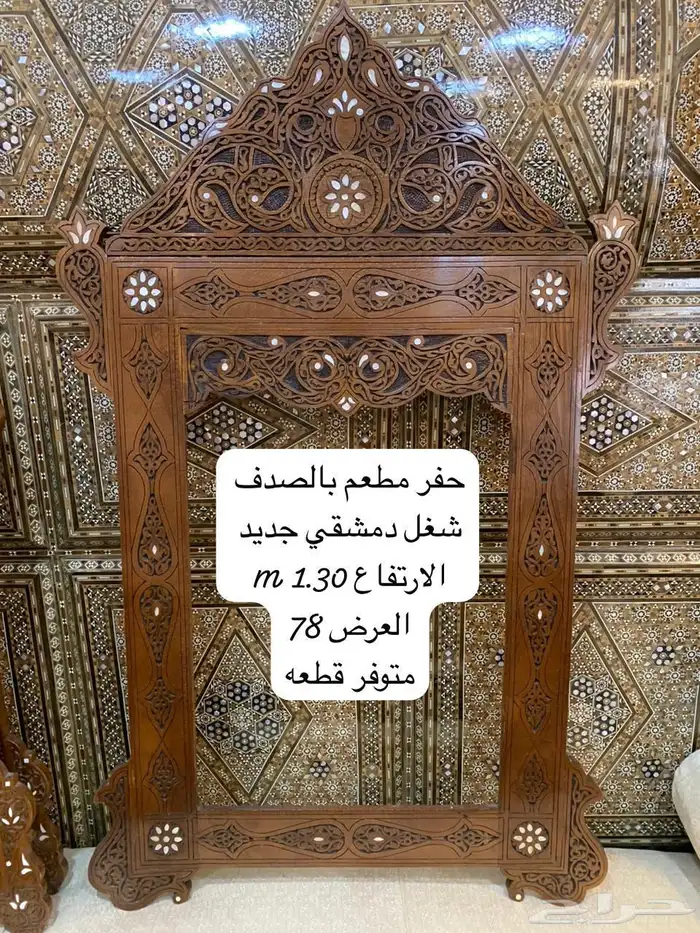 حفر مطعم بالصدف
شغل دمشقي جديد
الارتفاع 1.30 m
العرض 78
متوفر قطعه
حراج